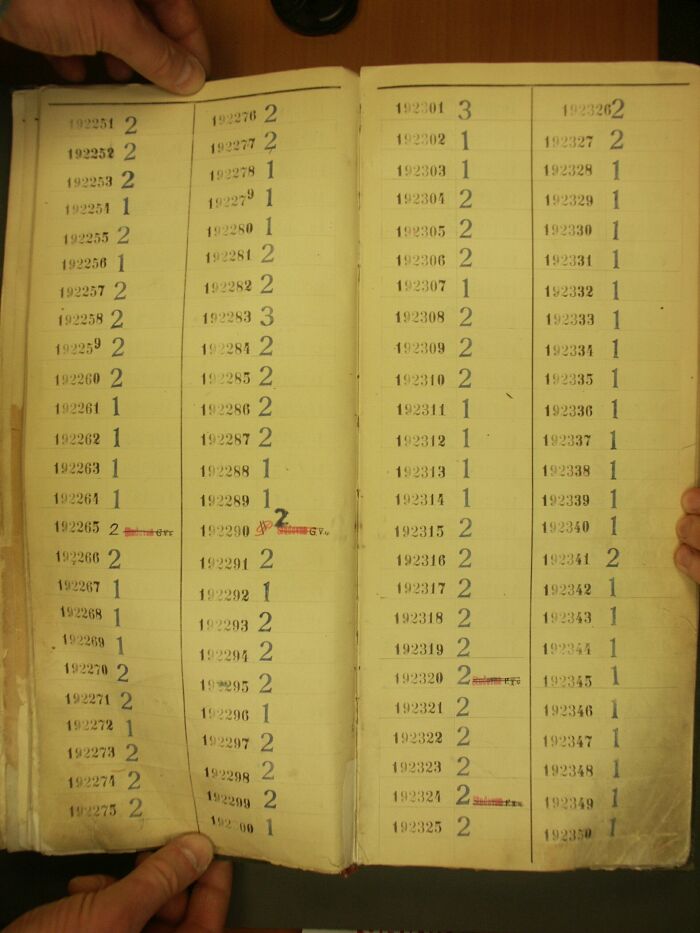 192251 2
192252 2
192253 2
192254 1
192255 2
192256 1
192257 2
192258 2
192259 2
192260 2
192261 1
192262 1
192263 1
192264 1
192265 2 G.V.
192266 2
192267 1
192268 1
192269 1
192270 2
192271 2
192272 1
192273 2
192274 2
192275 2
192276 2
192277 2
192278 1
192279 1
192280 1
192281 2
192282 2
192283 3
192284 2
192285 2
192286 2
192287 2
192288 1
192289 1
192290 2 G.V.
192291 2
192292 1
192293 2
192294 2
192295 2
192296 1
192297 2
192298 2
192299 2
192300 1
192301 3
192302 1
192303 1
192304 2
192305 2
192306 2
192307 1
192308 2
192309 2
192310 2
192311 1
192312 1
192313 1
192314 1
192315 2
192316 2
192317 2
192318 2
192319 2
192320 2
192321 2
192322 2
192323 2
192324 2
192325 2
192326 2
192327 2
192328 1
192329 1
192330 1
192331 1
192332 1
192333 1
192334 1
192335 1
192336 1
192337 1
192338 1
192339 1
192340 1
192341 2
192342 1
192343 1
192344 1
192345 1
192346 1
192347 1
192348 1
192349 1
192350 1